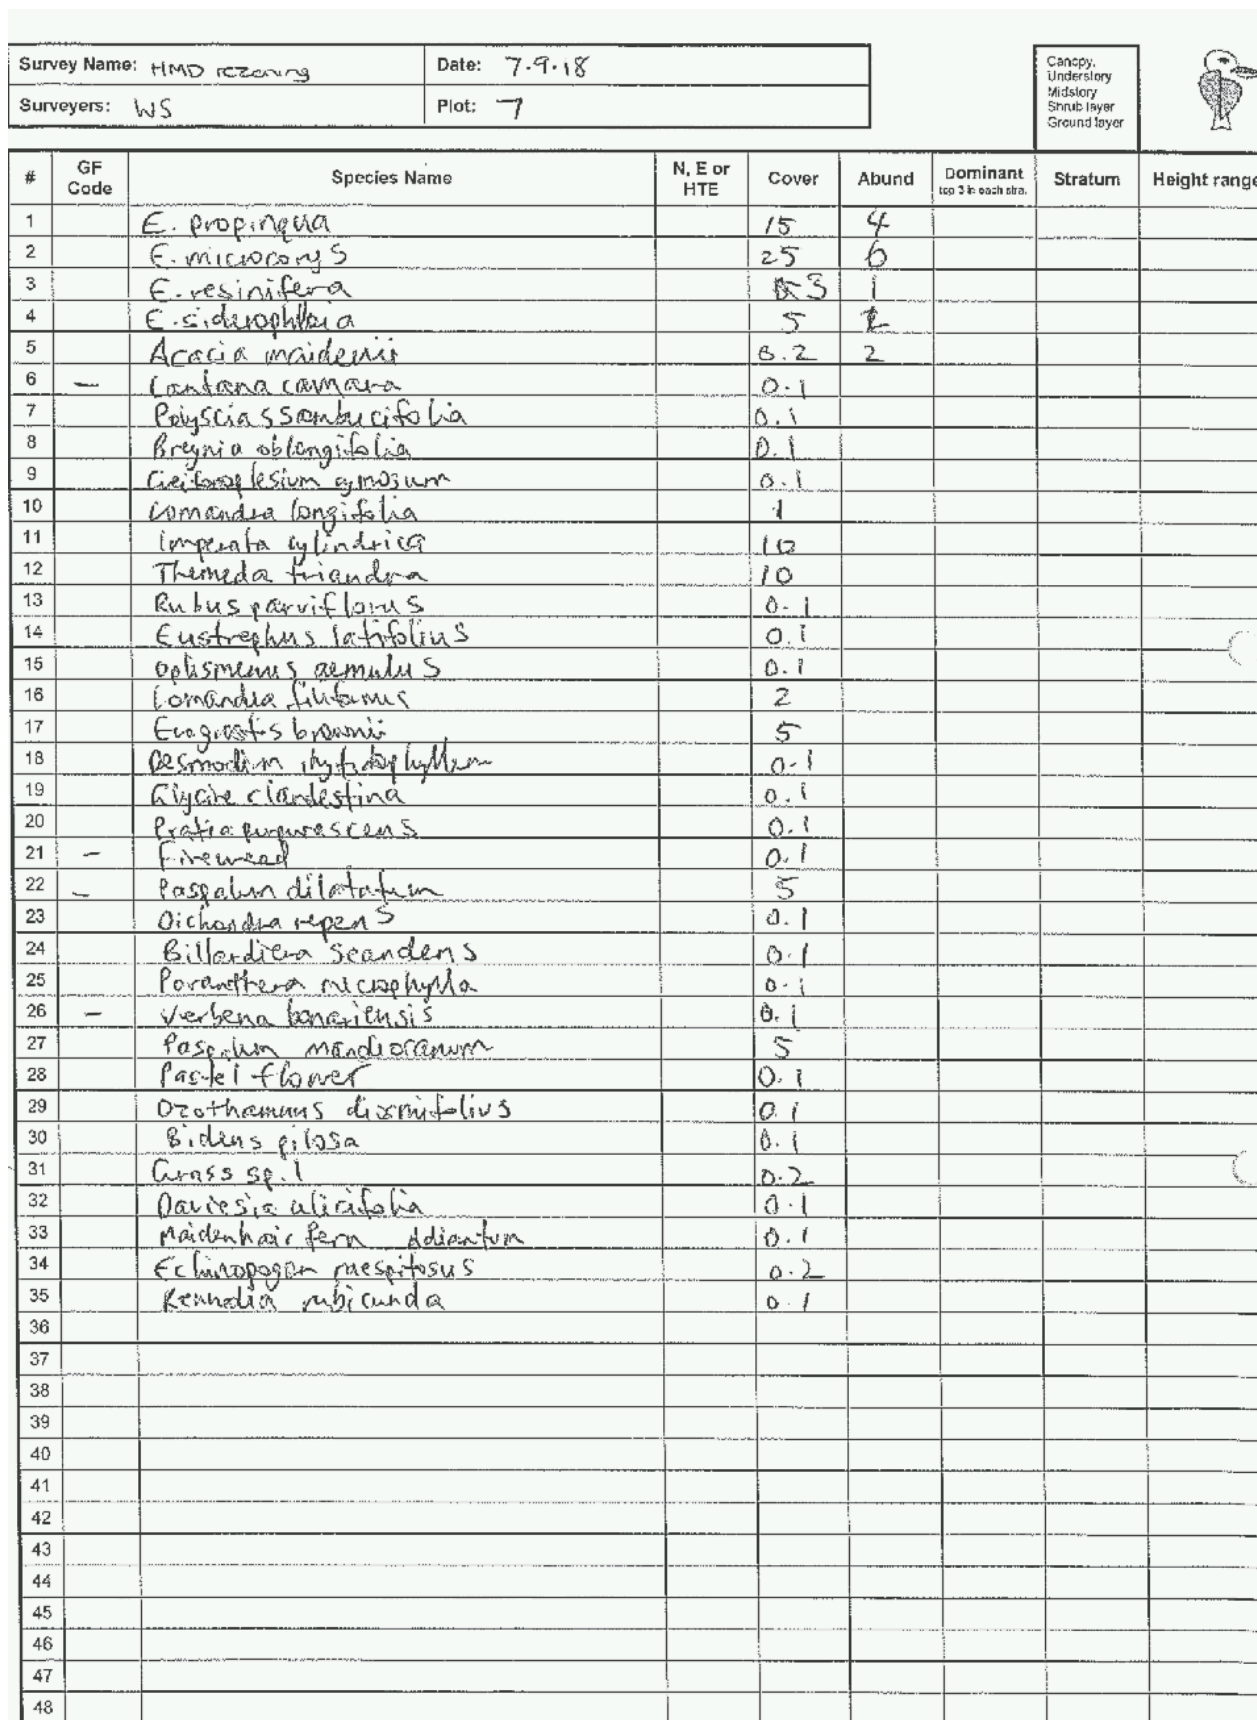 Survey Name: HMD rezoning Date: 7.9.18
Surveyers: WS Plot: 7
Canopy,
Understory
Midstory
Shrub layer
Ground layer
# GF Code Species Name N, E or HTE Cover Abund Dominant top 3 in each stra. Stratum Height range
1 E. propinqua 15 4
2 E. microcorys 25 6
3 E. resinifera 3 1
4 E. siderophloia 5
5 Acacia maidenii 0.2 2
6 – Lantana camara 0.1
7 Polyscias sambucifolia 0.1
8 Breynia oblongifolia 0.1
9 Geitonoplesium cymosum 0.1
10 Lomandra longifolia 1
11 Imperata cylindrica 10
12 Themeda triandra 10
13 Rubus parviflorus 0.1
14 Eustrephus latifolius 0.1
15 Oplismenus aemulus 0.1
16 Lomandra filiformis 2
17 Eragrostis brownii 5
18 Desmodium rhytidophyllum 0.1
19 Glycine clandestina 0.1
20 Pratia purpurascens 0.1
21 – Fireweed 0.1
22 – Paspalum dilatatum 5
23 Dichondra repens 0.1
24 Billardiera scandens 0.1
25 Poranthera microphylla 0.1
26 – Verbena bonariensis 0.1
27 Paspalum mandiocanum 5
28 Pastel flower 0.1
29 Ozothamnus diosmifolius 0.1
30 Bidens pilosa 0.1
31 Grass sp. 1 0.2
32 Daviesia ulicifolia 0.1
33 Maidenhair fern Adiantum 0.1
34 Echinopogon caespitosus 0.2
35 Kennedia rubicunda 0.1
36
37
38
39
40
41
42
43
44
45
46
47
48